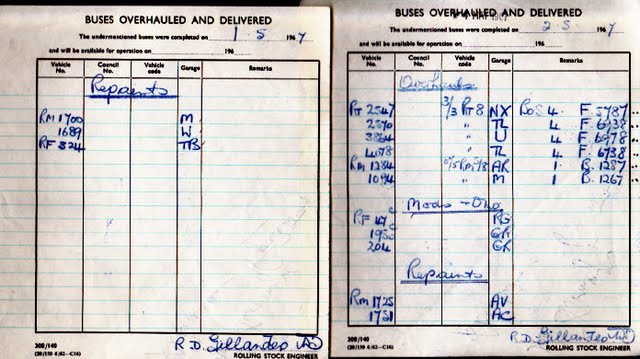 BUSES OVERHAULED AND DELIVERED
The undermentioned buses were completed on 1. 5 1967
and will be available for operation on 196
Vehicle No. Council No. Vehicle code Garage Remarks
Repaints
RM 1700 M
1689 W
RF 324 TB
308/140
(20/150 6/62—C16)
R.D.
ROLLING STOCK ENGINEER
BUSES OVERHAULED AND DELIVERED
The undermentioned buses were completed on 2. 5. 1967
and will be available for operation on 196
Vehicle No. Council No. Vehicle code Garage Remarks
Overhauls
RT 2547 3/3 RT8 NX Bos 4 F. 5787
2370 " TL 4 F. 6938
3864 " U 4 F. 6978
4078 " TL 4 F. 6738
RM 1284 AR 1 B. 1287
1094 " M 1 B. 1267
Mods - Omo
RF 47 RG
195 GR
204 GR
Repaints
RM 1725 AV
1751 AC
308/140
(20/150 6/62—C16)
R.D.
ROLLING STOCK ENGINEER